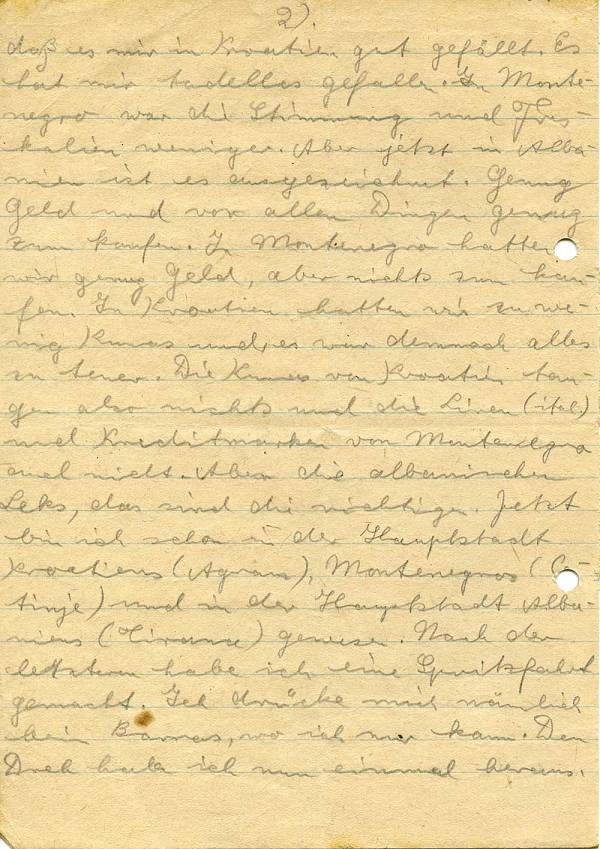 2).
daß es mir in Kroatien gut gefällt. Es
hat mir tadellos gefallen. In Monte-
negro war die Stimmung und
weniger. Aber jetzt in Alba-
nien ist es ausgezeichnet. Genug
Geld und vor allen Dingen genug
zum kaufen. In Montenegro hatten
wir genug Geld, aber nichts zum kau-
fen. In Kroatien hatten wir zu we-
nig Kunas und es war demnach alles
zu teuer. Die Kunas von Kroatien tau-
gen also nichts und die Liren (ital.)
und Kreditmarken von Montenegro
auch nicht. Aber die albanischen
Leks, das sind die richtigen. Jetzt
bin ich schon in der Hauptstadt
Kroatiens (Agram), Montenegros (Ce-
tinje) und in der Hauptstadt Alba-
niens (Tirana) gewesen. Nach der
letzteren habe ich eine Spritzfahrt
gemacht. Ich drücke mich nämlich
beim Barras, wo ich nur kann. Den
Dreh habe ich nun einmal heraus.